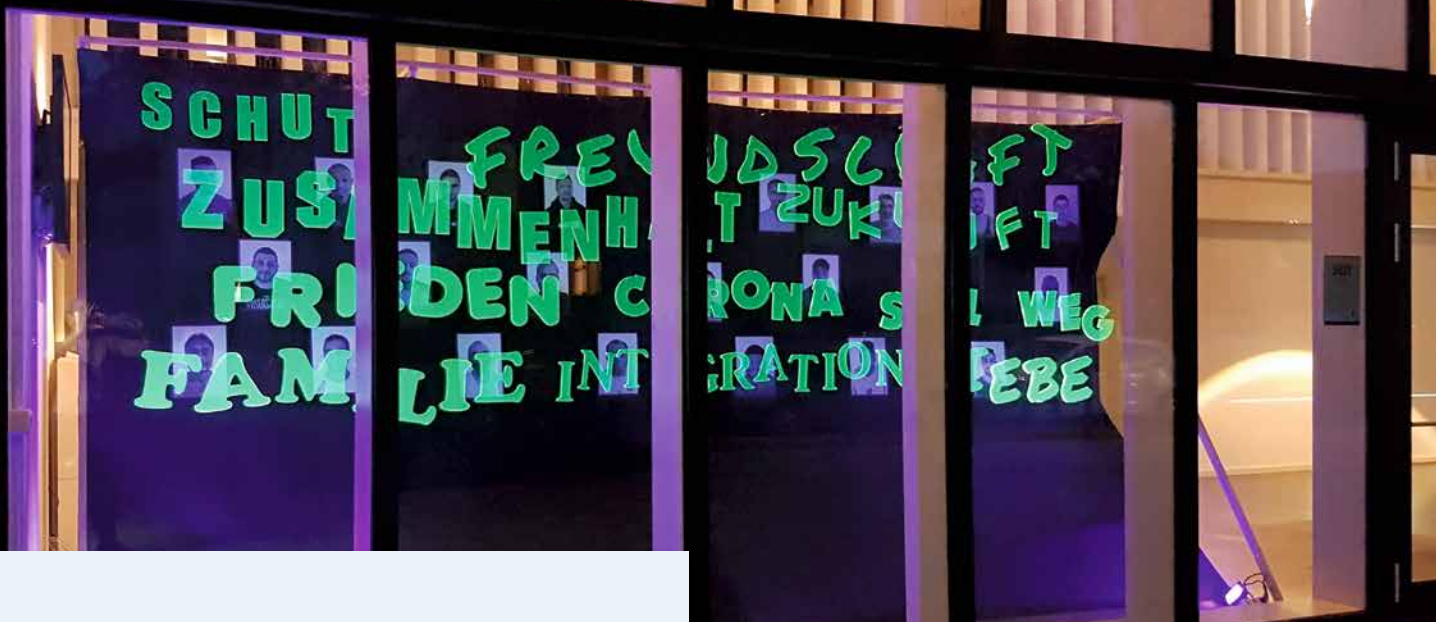 SCHUTZ FREUNDSCHAFT
ZUSAMMENHALT ZUKUNFT
FRIEDEN CORONA SOLL WEG
FAMILIE INTEGRATION LIEBE